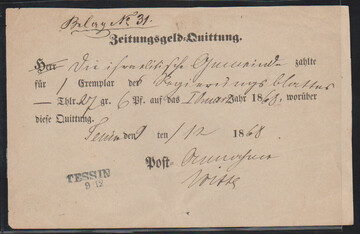 Belag No 31.
Zeitungsgeld-Quittung.
Herr Die israelitische Gemeinde zahlte
für 1 Exemplar des Regierungsblattes
— Thlr. 27 gr. 6 Pf. auf das Jahr 1868, worüber
diese Quittung.
Tessin den ten /12 1868
Post-
Witte
TESSIN
9 12